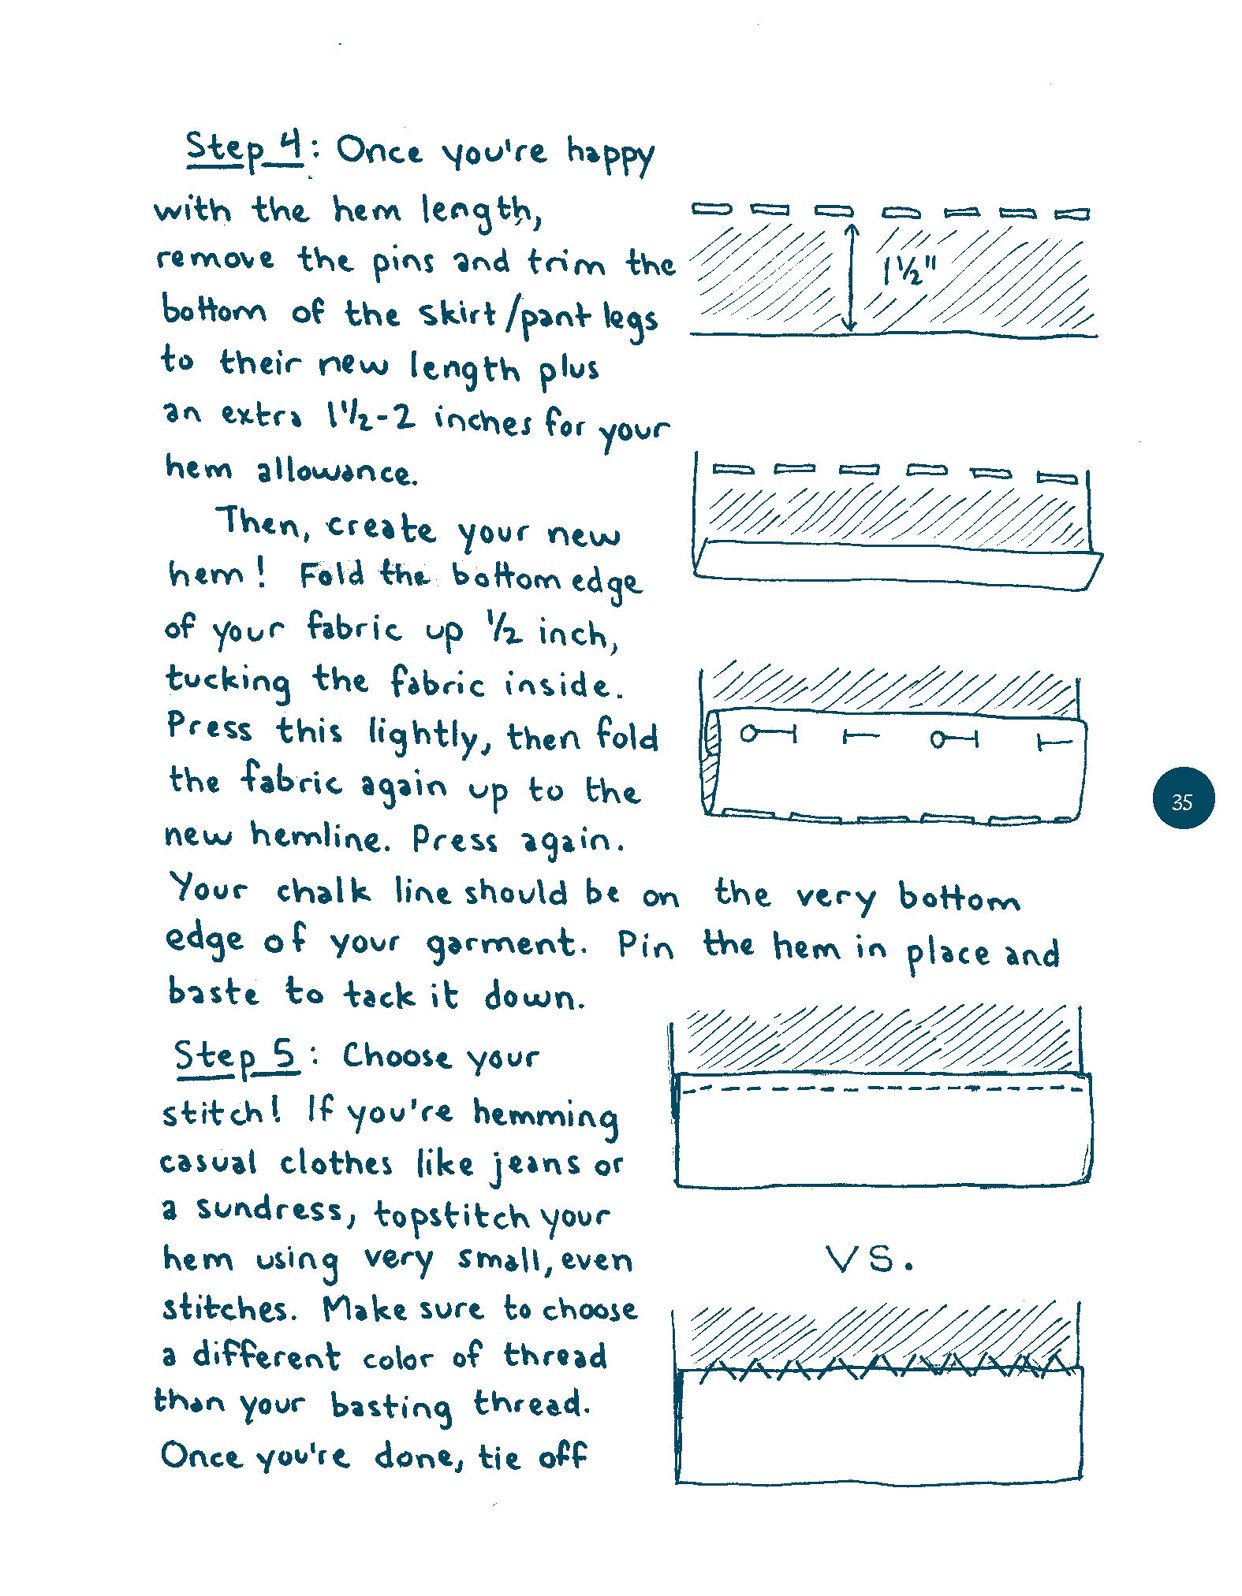 Step 4: Once you're happy
with the hem length,
remove the pins and trim the
bottom of the skirt/pant legs
to their new length plus
an extra 1½-2 inches for your
hem allowance.
Then, create your new
hem! Fold the bottom edge
of your fabric up ½ inch,
tucking the fabric inside.
Press this lightly, then fold
the fabric again up to the
new hemline. Press again.
Your chalk line should be on the very bottom
edge of your garment. Pin the hem in place and
baste to tack it down.
Step 5: Choose your
stitch! If you're hemming
casual clothes like jeans or
a sundress, topstitch your
hem using very small, even
stitches. Make sure to choose
a different color of thread
than your basting thread.
Once you're done, tie off
1½"
VS.
35